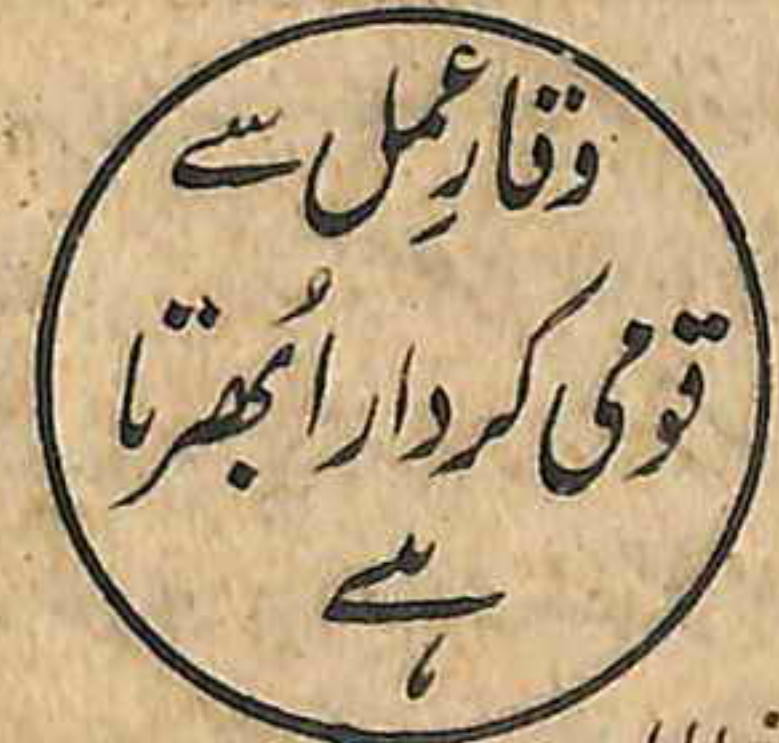 وقارِ عمل سے
قومی کردار اُبھرتا
ہے